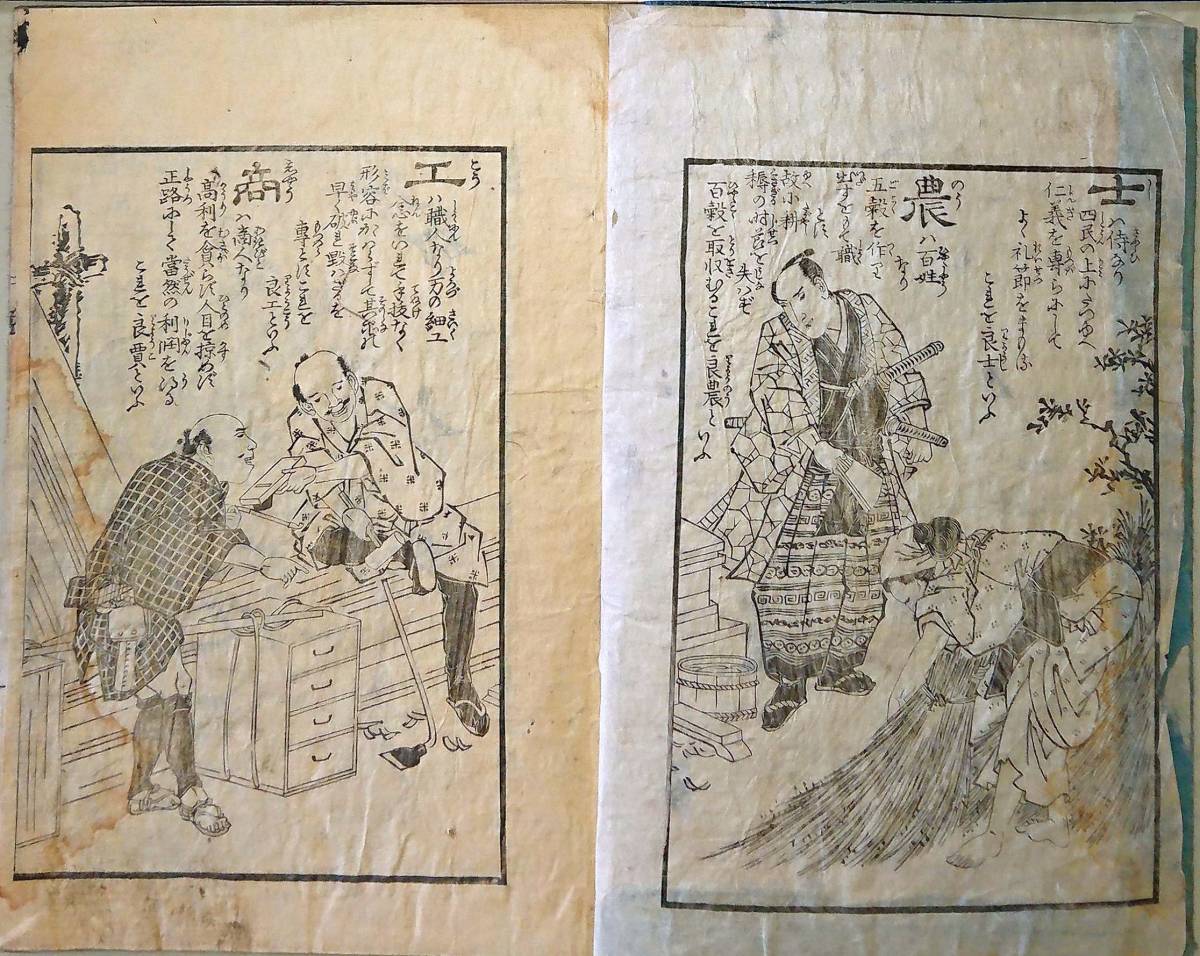 士
ハ侍なり
四民の上にたつゆへ
仁義を専らにして
よく礼節をまもる
これを良士といふ
農
ハ百姓
なり
五穀を作り
出すをもて職
とす
故に耕
耨の時節を
失ハず
百穀を取収むるこれを良農と
いふ
工
ハ職人なり万の細工
念をいれて手抜なく
形容にかゝハらずして其
早く破れ損ハざるを
専とすこれを
良工といふ
商
ハ商人なり
高利を貪らず人目を掠めず
正路にして当然の利潤を得る
これを良賈といふ